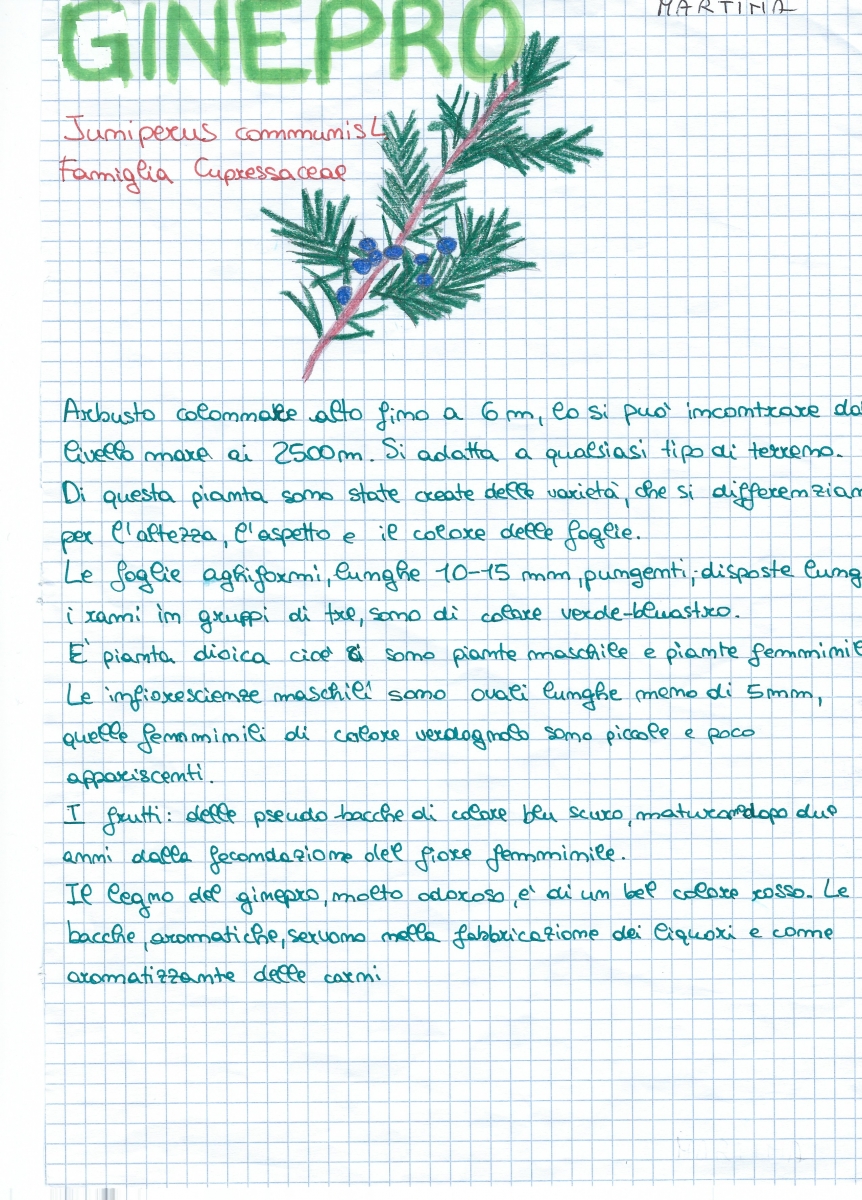 MARTINA
GINEPRO
Juniperus communis L
Famiglia Cupressaceae
Arbusto colonnare alto fino a 6 m, lo si può incontrare dal
livello mare ai 2500 m. Si adatta a qualsiasi tipo di terreno.
Di questa pianta sono state create delle varietà, che si differenzian
per l'altezza, l'aspetto e il colore delle foglie.
Le foglie aghiformi, lunghe 10-15 mm, pungenti, disposte lung
i rami in gruppi di tre, sono di colore verde-bluastro.
E' pianta dioica cioè ci sono piante maschile e piante femminile
Le infiorescienze maschili sono ovali lunghe meno di 5mm,
quelle femminili di colore verdognolo sono piccole e poco
appariscenti.
I frutti: delle pseudo bacche di colore blu scuro, maturano dopo due
anni dalla fecondazione del fiore femminile.
Il legno del ginepro, molto odoroso, è di un bel colore rosso. Le
bacche, aromatiche, servono nella fabbricazione dei liquori e come
aromatizzante delle carni